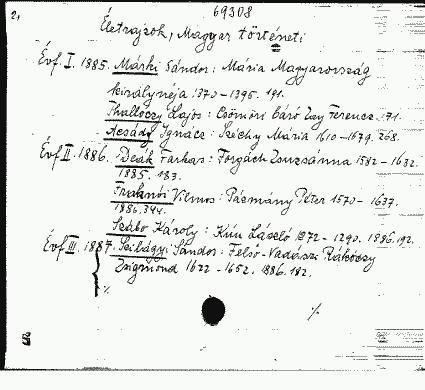 69308
2,
Életrajzok, Magyar történeti
Évf I. 1885. Márki Sándor: Mária Magyarország
királynéja 1370-1395. 191.
Thallóczy Lajos: Csömöri báró Zay Ferencz. 171.
Acsády Ignácz: Széchy Mária 1610-1679. 268.
Évf II. 1886. Deák Farkas: Forgách Zsuzsánna 1582-1632.
1885. 183.
Fraknói Vilmos: Pázmány Péter 1570-1637.
1886. 344.
Szabó Károly: Kún László 1272-1290. 1886. 192.
Évf III. 1887. Szilágyi Sándor: Felső-Vadászi Rákóczy
Zsigmond 1622-1652. 1886. 182.
%
%